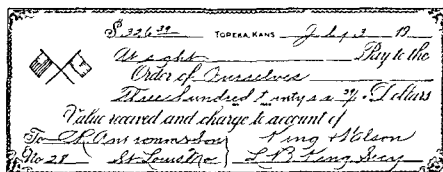 $326 39 TOPEKA, KANS July 3 19
At sight Pay to the
Order of Ourselves
Three hundred twenty six 39/ Dollars
Value received and charge to account of
To Son King Wilson
No 28 St Louis Mo L B King Secy